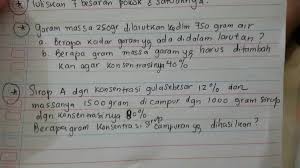 * tuliskan 7 besaran pokok & satuannya.
* garam massa 250gr dilarutkan kedlm 750 gram air
a. Berapa kadar garam yg ada didalam larutan ?
b. Berapa gram massa garam yg harus ditambah
kan agar konsentrasinya 40%
* Sirop A dgn konsentrasi gula sebesar 12% dan
massanya 1500 gram di campur dgn 1000 gram sirup
dgn konsentrasinya 80%
Berapa gram konsentrasi sirop campuran yg dihasilkan ?